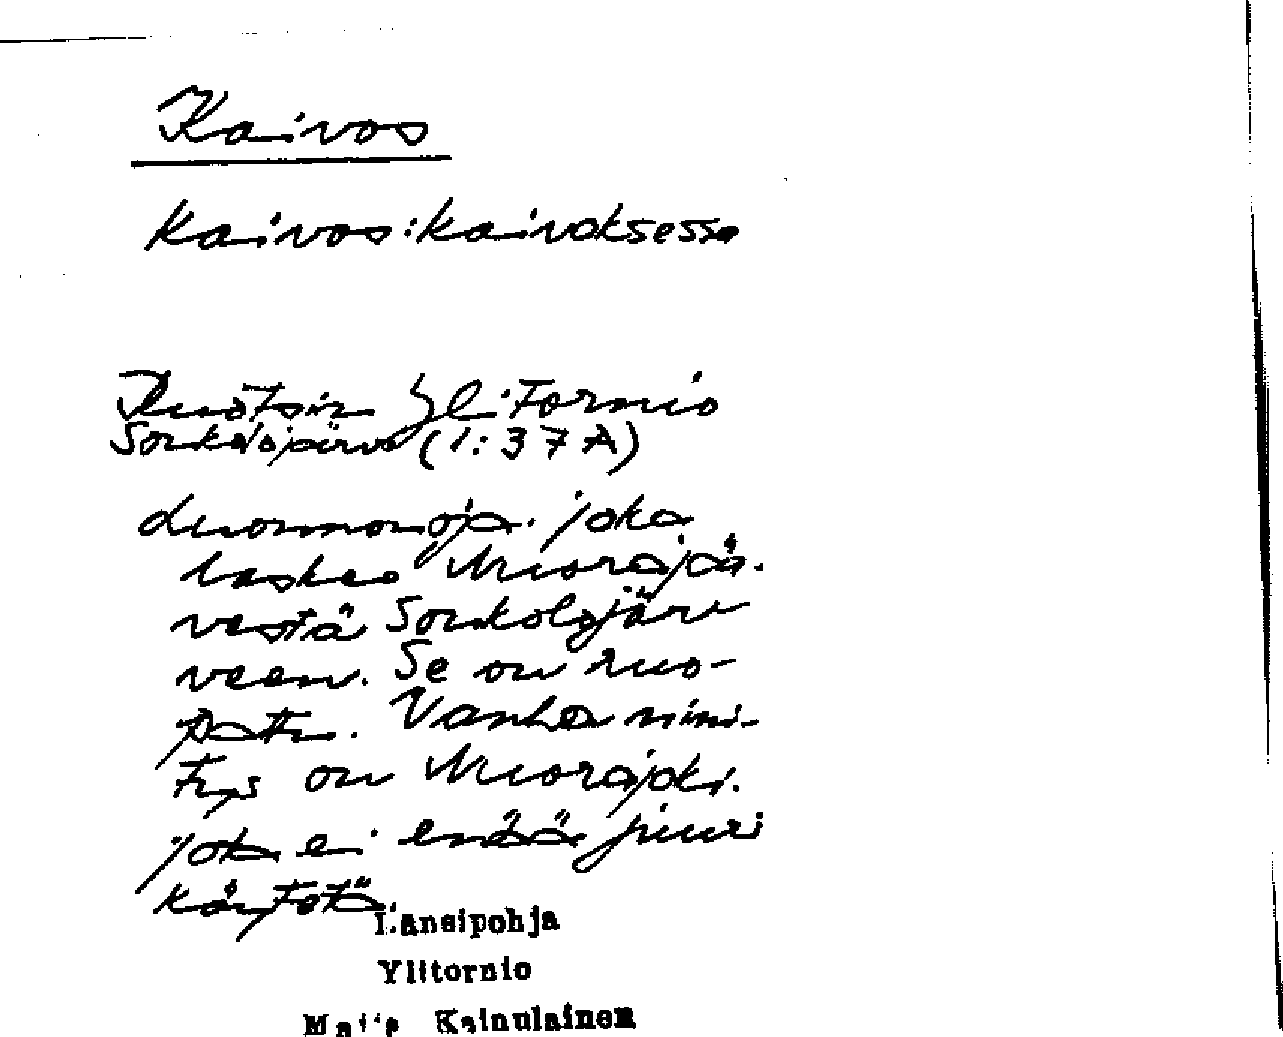 Kaivos
Kaivos:kaivoksessa
Ruotsin Ylitornio
Soukolojärvi (1:37A)
Luonnonoja. joka
laskee Muorajär-
vestä Soukolojär-
veen. Se on ruo-
pattu. Vanha nimi-
tys on Muorajoki.
joka ei enää juuri
käytetä.
Länsipohja
Ylitornio
Maija Kainulainen